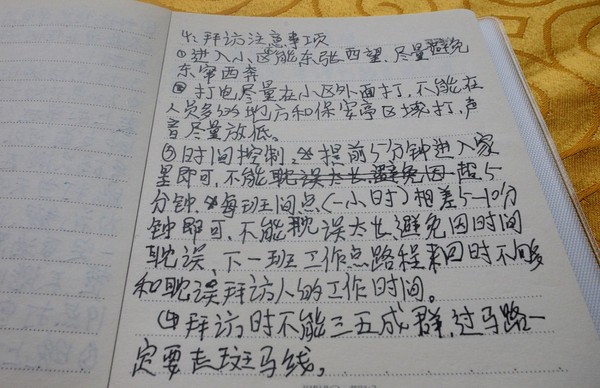 4、拜访注意事项
①进入小区能东张西望、尽量避免
东窜西奔
②打电尽量在小区外面打,不能在
人员多的地方和保安亭区域打,声
音尽量放低。
③时间控制、提前5分钟进入家
里即可,不能耽误太长避免因超5
分钟、每班间点(一小时)相差5-10分
钟即可、不能耽误太长避免因时间
耽误、下一班工作点路程来回时不够
和耽误拜访人的工作时间。
④拜访时不能三五成群,过马路一
定要走斑马线。